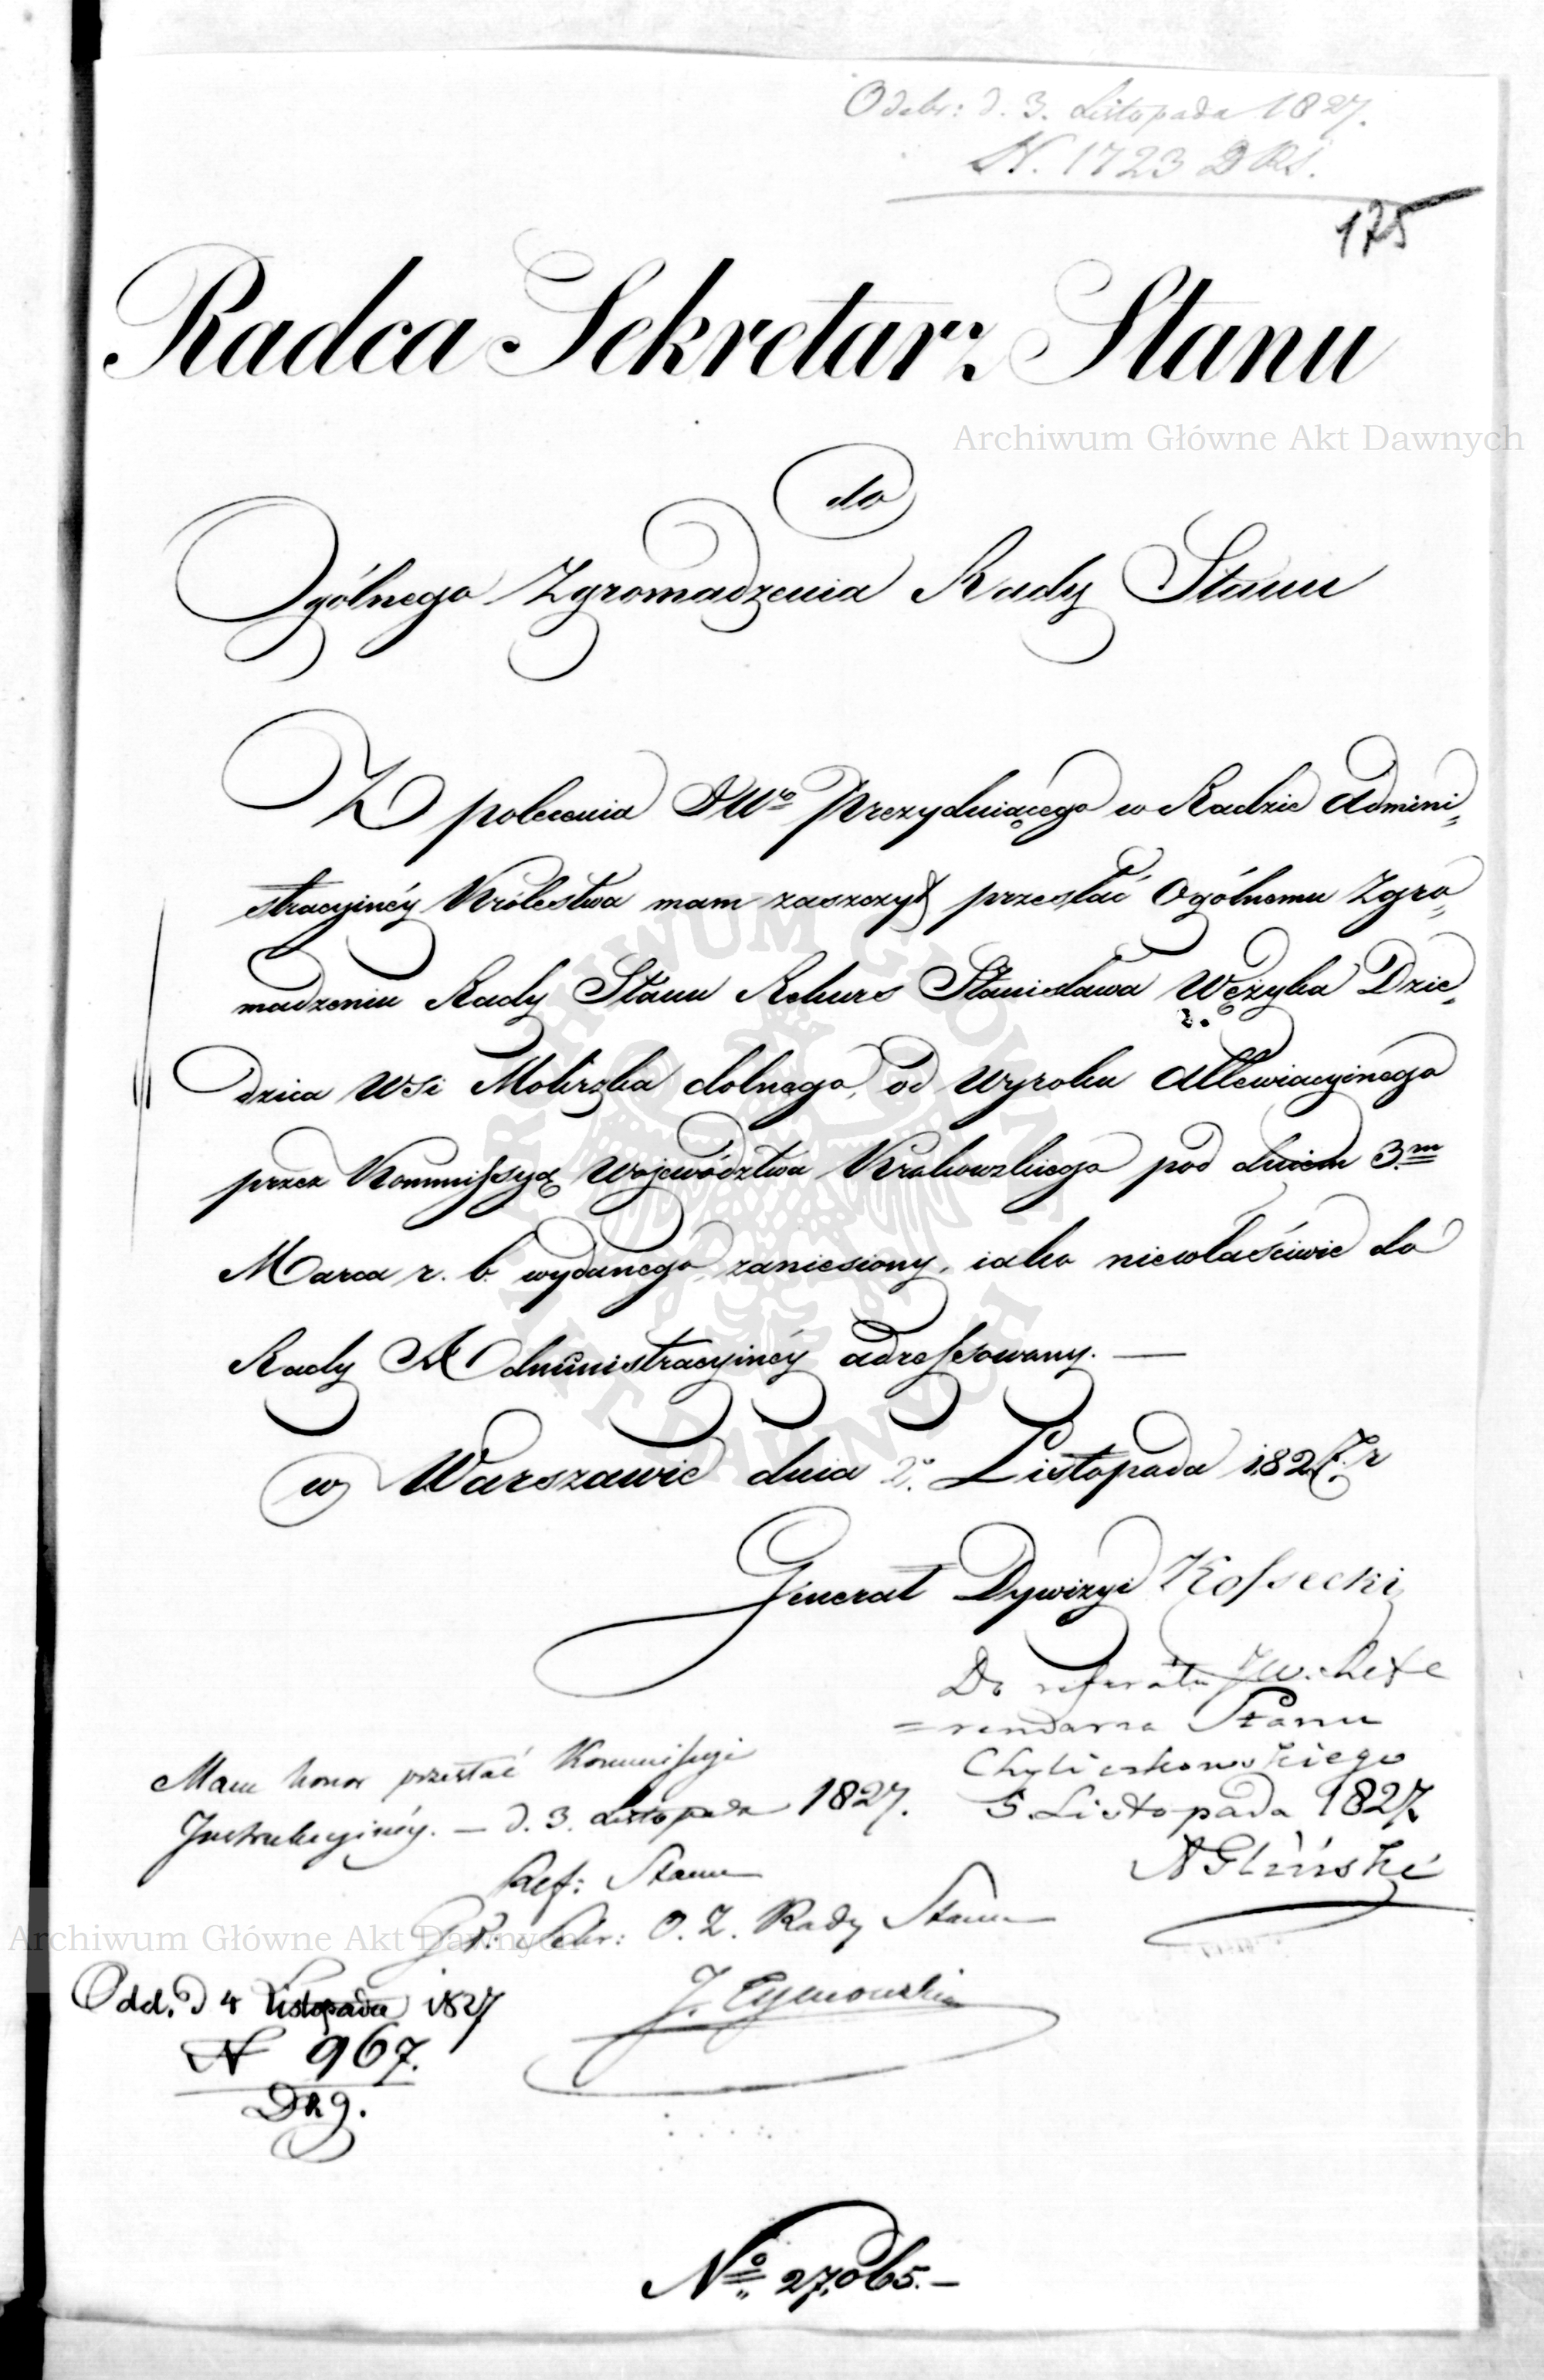 Odebr: d. 3. Listopada 1827.
N. 1723 D Rs.
175
Radca Sekretarz Stanu
Archiwum Główne Akt Dawnych
do
Ogólnego Zgromadzenia Rady Stanu
Z polecenia JWo Prezyduiącego w Radzie Admini„
stracyinéy Królestwa mam zaszczyt przesłać Ogólnemu Zgro„
madzeniu Rady Stanu Rekurs Stanisława Wężyka Dzie„
dzica Wsi Mokrzka dolnego, od Wyroku Allewiacyinego
przez Kommissyą Województwa Krakowskiego pod dniem 3m
Marca r. b. wydanego zaniesiony, iako niewłaściwie do
Rady Administracyinéy adressowany. —
w Warszawie dnia 2o Listopada 1827. r
Generał Dywizyi Kossecki
Do referatu JW. Refe
= rendarza Stanu
Chyliczkowskiego
5 Listopada 1827.
AGliński
Mam honor przesłać Kommissyi
Instrukcyinéy. — d. 3. Listopada 1827.
Ref: Stanu
Sekr: O. Z. Rady Stanu
J. Tymowski
Archiwum Główne Akt Dawnych
Odd. d 4 Listopada 1827
N 967.
DRg.
No 27,065.—